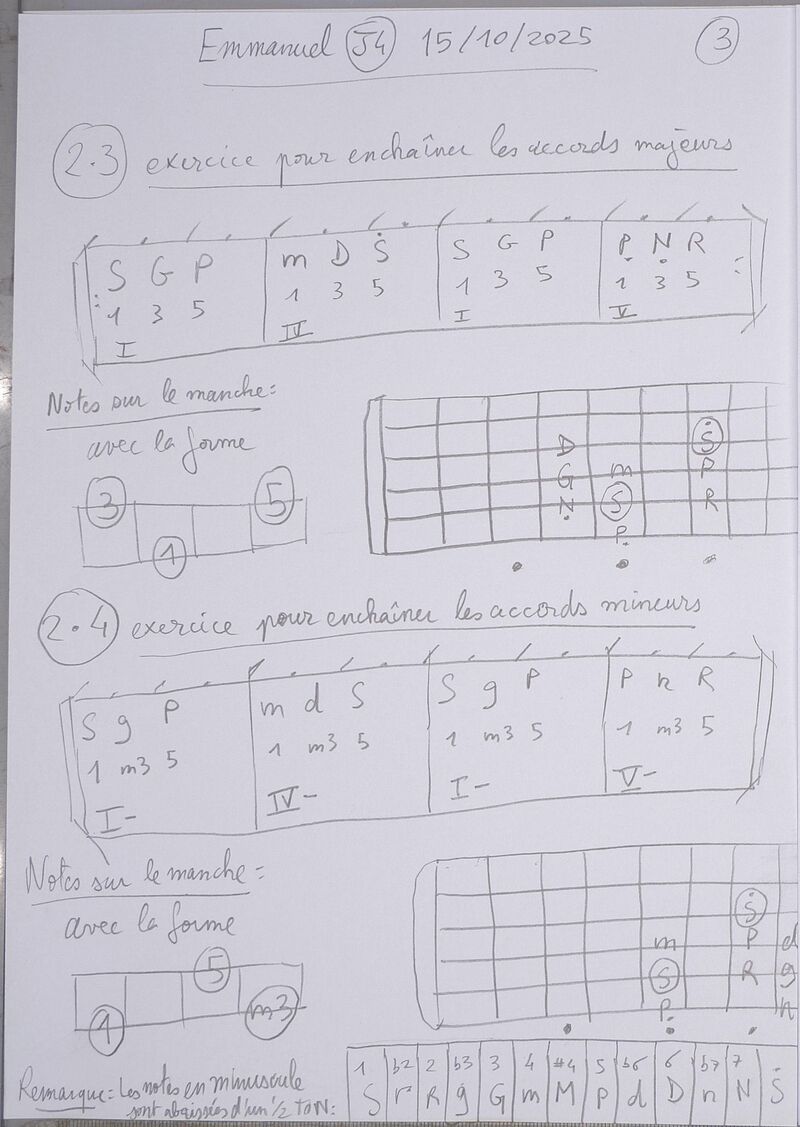 Emmanuel J4 15/10/2025 3
2.3 exercice pour enchaîner les accords majeurs
S G P m D Ṡ S G P Ṗ Ṇ R
1 3 5 1 3 5 1 3 5 1 3 5
I IV I V
Notes sur le manche:
avec la forme
3 5
1
Ṡ
D
G m P
Ṇ S R
Ṗ
2.4 exercice pour enchaîner les accords mineurs
S g P m d S S g P P n R
1 m3 5 1 m3 5 1 m3 5 1 m3 5
I- IV- I- V-
Notes sur le manche:
avec la forme
5
1 m3
Ṡ
m P d
S R g
P. n
Remarque: Les notes en minuscule
sont abaissées d'un 1/2 TON:
1 b2 2 b3 3 4 #4 5 b6 6 b7 7
S r R g G m M P d D n N Ṡ